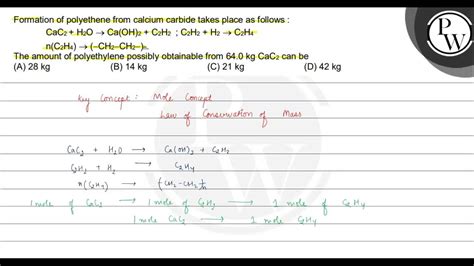 Formation of polyethene from calcium carbide takes place as follows :
CaC2 + H2O → Ca(OH)2 + C2H2 ; C2H2 + H2 → C2H4
n(C2H4) → (–CH2–CH2–)n.
The amount of polyethylene possibly obtainable from 64.0 kg CaC2 can be
(A) 28 kg (B) 14 kg (C) 21 kg (D) 42 kg
Key Concept : Mole Concept
Law of Conservation of Mass
CaC2 + H2O → Ca(OH)2 + C2H2
C2H2 + H2 → C2H4
n(C2H4) → (CH2-CH2)n
1 mole of CaC2 → 1 mole of C2H2 → 1 mole of C2H4
1 mole CaC2 → 1 mole C2H4
PW